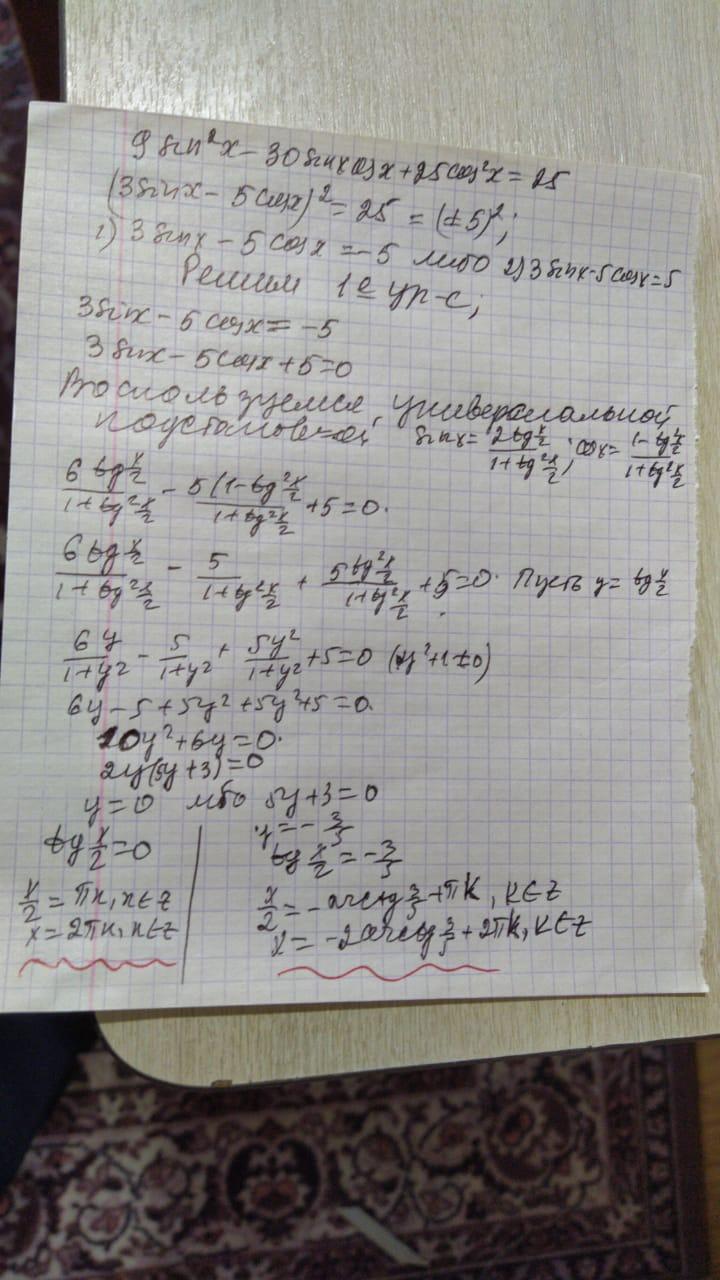 9 sin²x - 30 sinx cosx + 25 cos²x = 25
(3 sinx - 5 cosx)² = 25 = (±5)²;
1) 3 sinx - 5 cosx = -5 либо 2) 3 sinx - 5 cosx = 5
Решим 1е ур-е;
3 sinx - 5 cosx = -5
3 sinx - 5 cosx + 5 = 0
Воспользуемся универсиальной
подстановкой sinx = 2tg x/2 / 1+tg² x/2; cosx = 1-tg² x/2 / 1+tg² x/2
6 tg x/2 / 1+tg² x/2 - 5(1-tg² x/2 / 1+tg² x/2 + 5 = 0.
6 tg x/2 / 1+tg² x/2 - 5 / 1+tg² x/2 + 5 tg² x/2 / 1+tg² x/2 + 5 = 0. Пусть y = tg x/2
6y / 1+y² - 5 / 1+y² + 5y² / 1+y² + 5 = 0 (y²+1≠0)
6y - 5 + 5y² + 5y² + 5 = 0.
10y² + 6y = 0.
2y(5y + 3) = 0
y = 0 либо 5y + 3 = 0
y = - 3/5
tg x/2 = 0
tg x/2 = - 3/5
x/2 = πn, n∈Z
x = 2πn, n∈Z
x/2 = - arctg 3/5 + πk, k∈Z
x = -2arctg 3/5 + 2πk, k∈Z